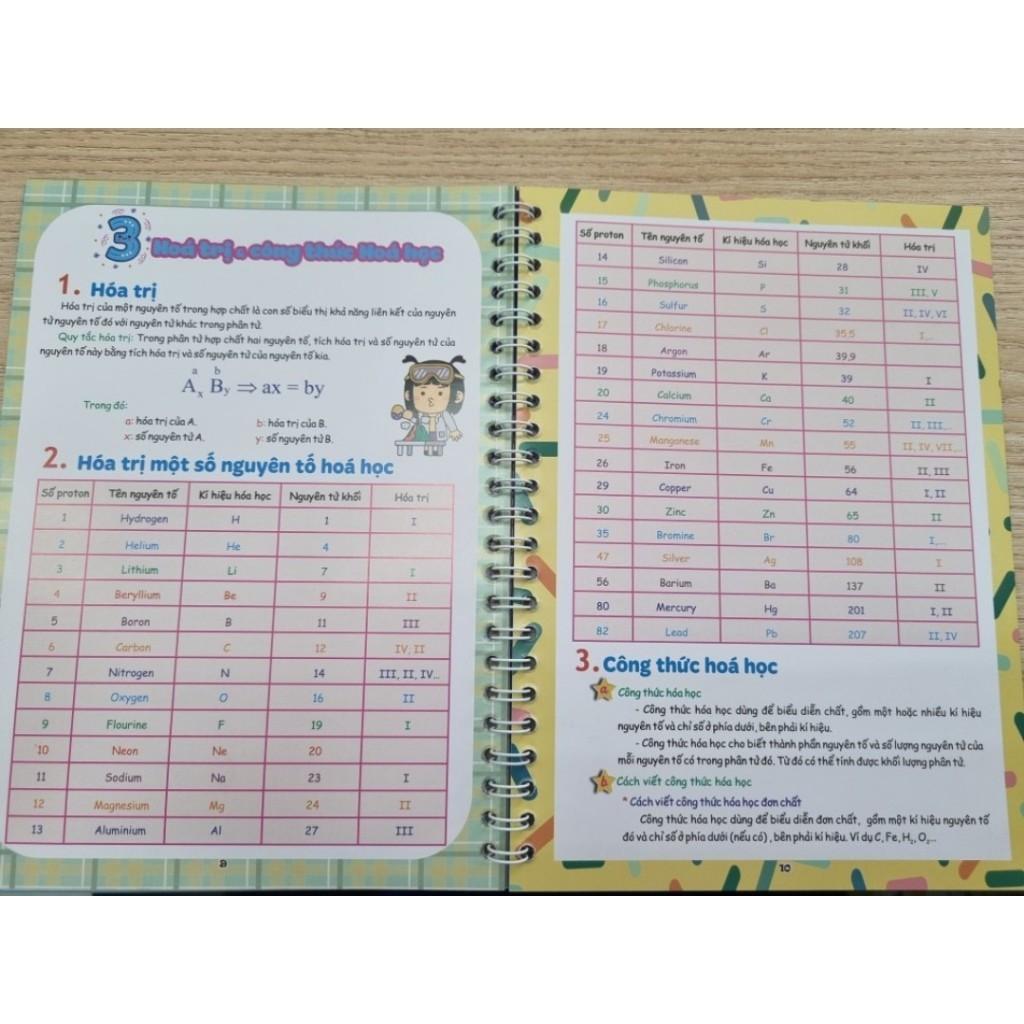 3 Hoá trị & công thức Hoá học
1. Hóa trị
Hóa trị của một nguyên tố trong hợp chất là con số biểu thị khả năng liên kết của nguyên
tử nguyên tố đó với nguyên tử khác trong phân tử.
Quy tắc hóa trị: Trong phân tử hợp chất hai nguyên tố, tích hóa trị và số nguyên tử của
nguyên tố này bằng tích hóa trị và số nguyên tử của nguyên tố kia.
a b
Aₓ Bᵧ ⇒ ax = by
Trong đó:
a: hóa trị của A. b: hóa trị của B.
x: số nguyên tử A. y: số nguyên tử B.
2. Hóa trị một số nguyên tố hoá học
Số proton Tên nguyên tố Kí hiệu hóa học Nguyên tử khối Hóa trị
1 Hydrogen H 1 I
2 Helium He 4
3 Lithium Li 7 I
4 Beryllium Be 9 II
5 Boron B 11 III
6 Carbon C 12 IV, II
7 Nitrogen N 14 III, II, IV...
8 Oxygen O 16 II
9 Flourine F 19 I
10 Neon Ne 20
11 Sodium Na 23 I
12 Magnesium Mg 24 II
13 Aluminium Al 27 III
9
Số proton Tên nguyên tố Kí hiệu hóa học Nguyên tử khối Hóa trị
14 Silicon Si 28 IV
15 Phosphorus P 31 III, V
16 Sulfur S 32 II, IV, VI
17 Chlorine Cl 35,5 I,...
18 Argon Ar 39,9
19 Potassium K 39 I
20 Calcium Ca 40 II
24 Chromium Cr 52 II, III,..
25 Manganese Mn 55 II, IV, VII,...
26 Iron Fe 56 II, III
29 Copper Cu 64 I, II
30 Zinc Zn 65 II
35 Bromine Br 80 I,...
47 Silver Ag 108 I
56 Barium Ba 137 II
80 Mercury Hg 201 I, II
82 Lead Pb 207 II, IV
3. Công thức hoá học
a Công thức hóa học
- Công thức hóa học dùng để biểu diễn chất, gồm một hoặc nhiều kí hiệu
nguyên tố và chỉ số ở phía dưới, bên phải kí hiệu.
- Công thức hóa học cho biết thành phần nguyên tố và số lượng nguyên tử của
mỗi nguyên tố có trong phân tử đó. Từ đó có thể tính được khối lượng phân tử.
b Cách viết công thức hóa học
* Cách viết công thức hóa học đơn chất
Công thức hóa học dùng để biểu diễn đơn chất, gồm một kí hiệu nguyên tố
đó và chỉ số ở phía dưới (nếu có), bên phải kí hiệu. Ví dụ C, Fe, H₂, O₂...
10